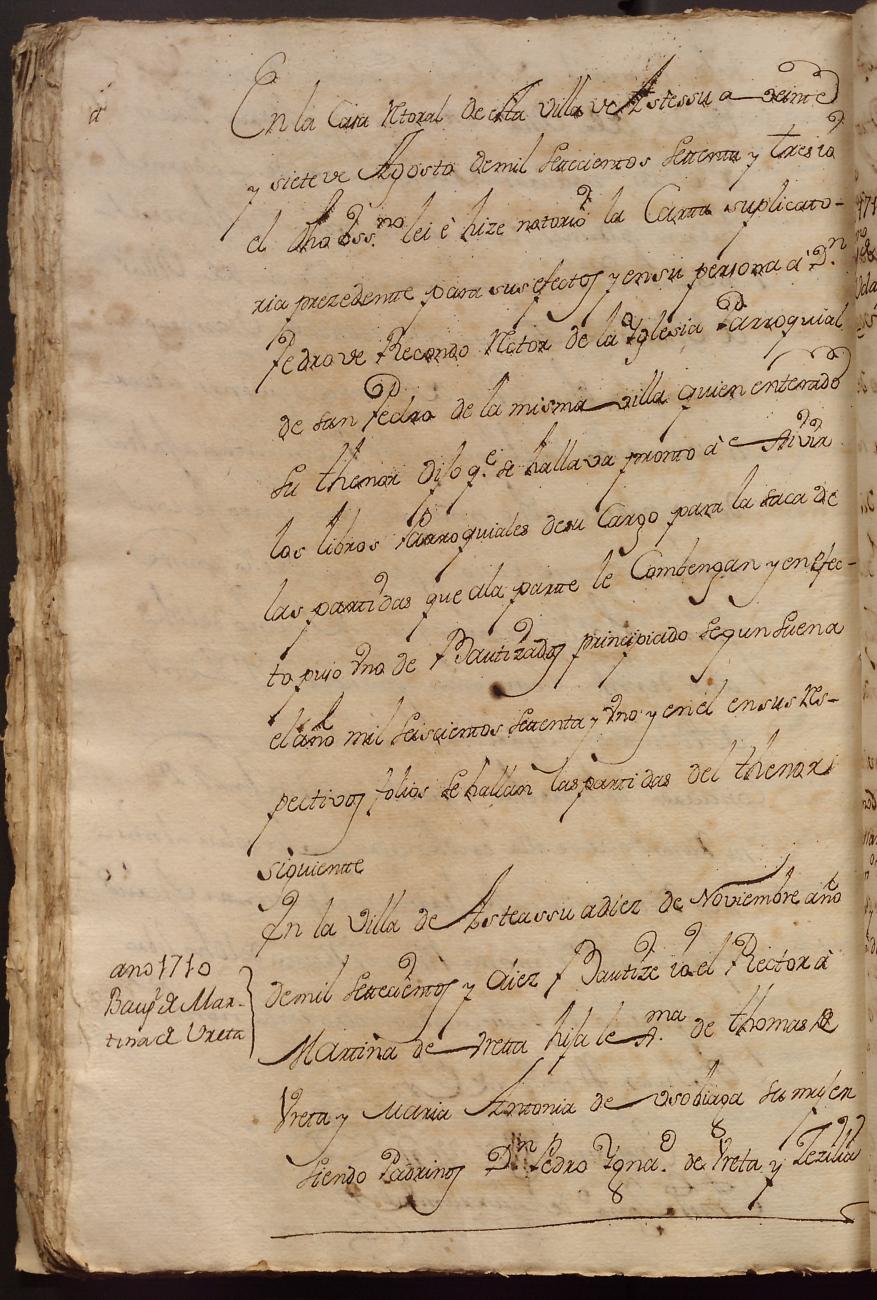 En la Casa Rtoral de esta villa de Astessu a veinte
y siete de Agosto de mil Settecientos Settenta y tres io
el dho Ess.no lei è hize notorio la Carta suplicato-
ria prezedente para sus efectos y en su persona à D.n
Pedro de Recondo Rctor de la Yglesia Parroquial
de san Pedro de la misma villa quien enterado
su thenor dijo q.e se hallava pronto à
los libros Parroquiales de su Cargo para la saca de
las partidas que ala parte le Combengan y en efec-
to puso Vno de Bautizados principiado segun suena
el año mil seiscientos settenta y Vno y en el en sus Res-
pectivos folios se hallan las partidas del thenor
siguiente
En la villa de Asteassu a diez de Noviembre año
de mil Settecientos y diez Bautize io el Rector à
Martina de Vretta hija le.ma de thomas de
Vreta y Maria Antonia de Vsobiaga su mujer
siendo Padrinos D.n Pedro Ygna.o de Vreta y Zezilia
ano 1710
Baup.o de Mar-
tina de Vreta